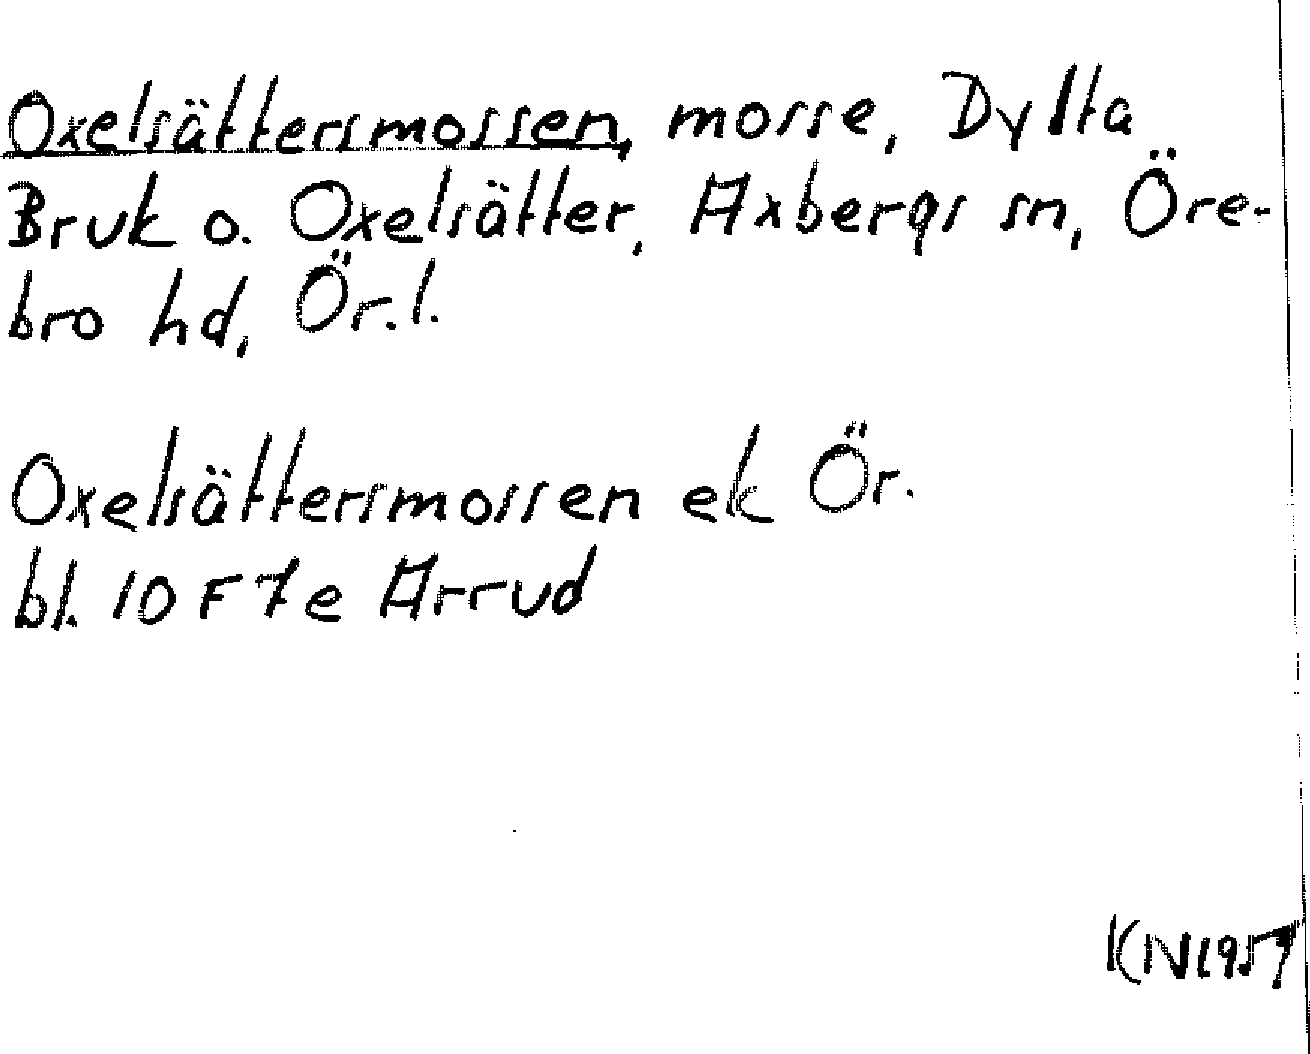 Oxelsättersmossen, mosse, Dylta
Bruk o. Oxelsätter, Axbergs sn, Öre-
bro hd, Ör.l.
Oxelsättersmossen ek Ör.
bl. 10 F 7e Arrud
KN 1957